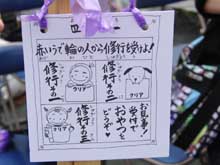 四
赤いうで輪の人から修行を受けよ!
修行その一
クリア
修行その二
クリア
修行その三
クリア
お見事!
受付で
おやつを
どうぞ♥